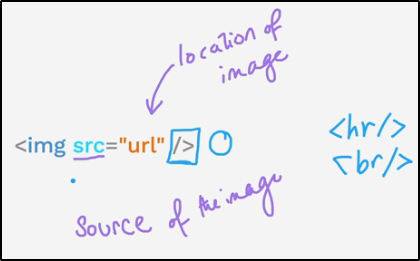 location of
image
<img src="url" />
<hr/>
<br/>
source of the image